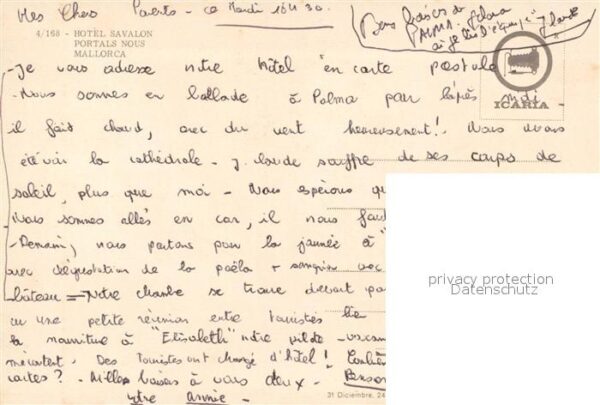 Mes Chers Parents - ce Mardi 16H30.
Bons baisers de
PALMA. Jolana
ai je l'équipe J. Laude
4/168 - HOTEL SAVALON
PORTALS NOUS
MALLORCA
ICARIA
- Je vous adresse notre hôtel en carte postale
- Nous sommes en ballade à Palma par l'après midi -
il fait chaud, avec du vent heureusement! Nous avons
été voir la cathédrale - J. Laude souffre de ses coups de
soleil, plus que moi - Nous espérons
Nous sommes allés en car, il nous faut
- Demain, nous partons pour la journée à "
avec dégustation de la paëla + sangria
bâteau = Notre chambre se trouve devant
eu une petite réunion entre touristes
la nourriture à "Elisabeth" notre
mécontent - Des touristes ont changé d'hôtel!
cartes? - Milles baisers à vous deux -
votre Annie -
privacy protection
Datenschutz
31 Diciembre, 24